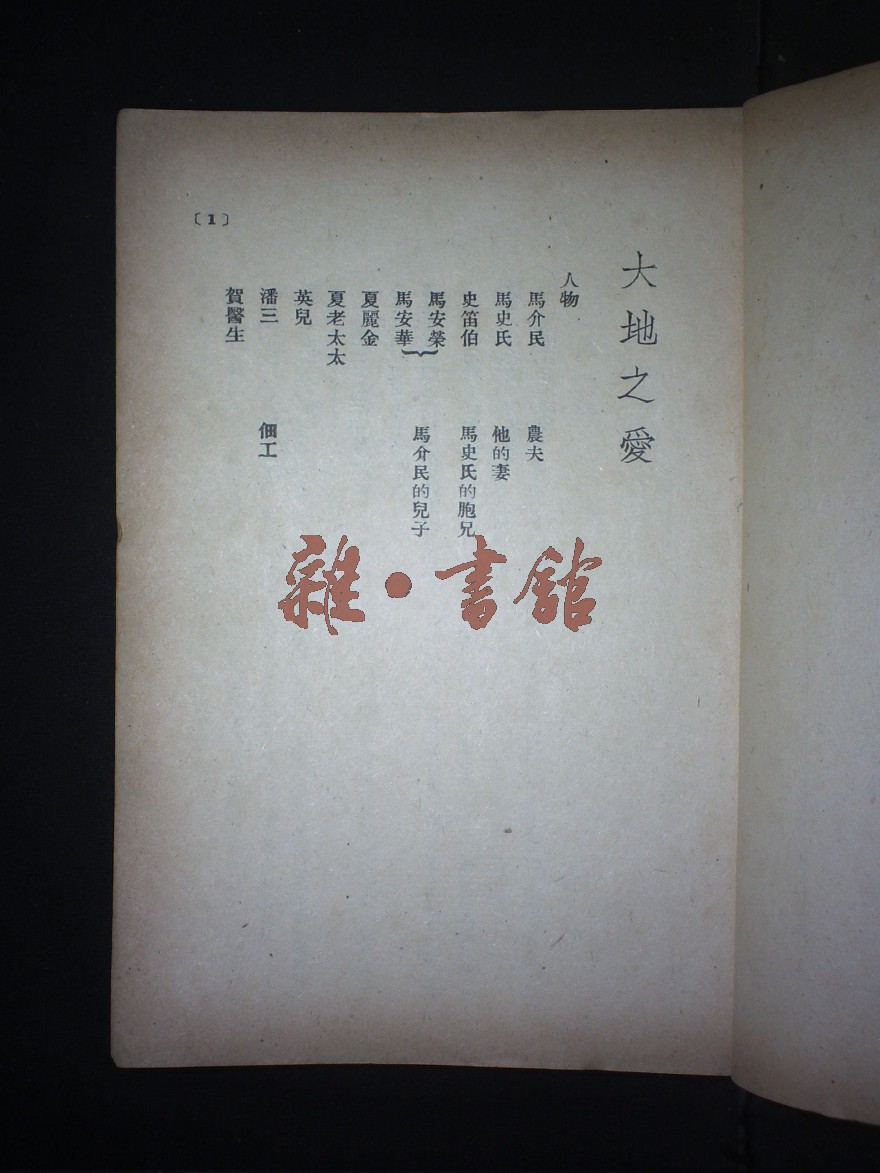 大地之愛
人物
馬介民　農夫
馬史氏　他的妻
史笛伯　馬史氏的胞兄
馬安榮
馬安華　馬介民的兒子
夏麗金
夏老太太
英兒
潘三　佃工
賀醫生
〔1〕
雜•書館